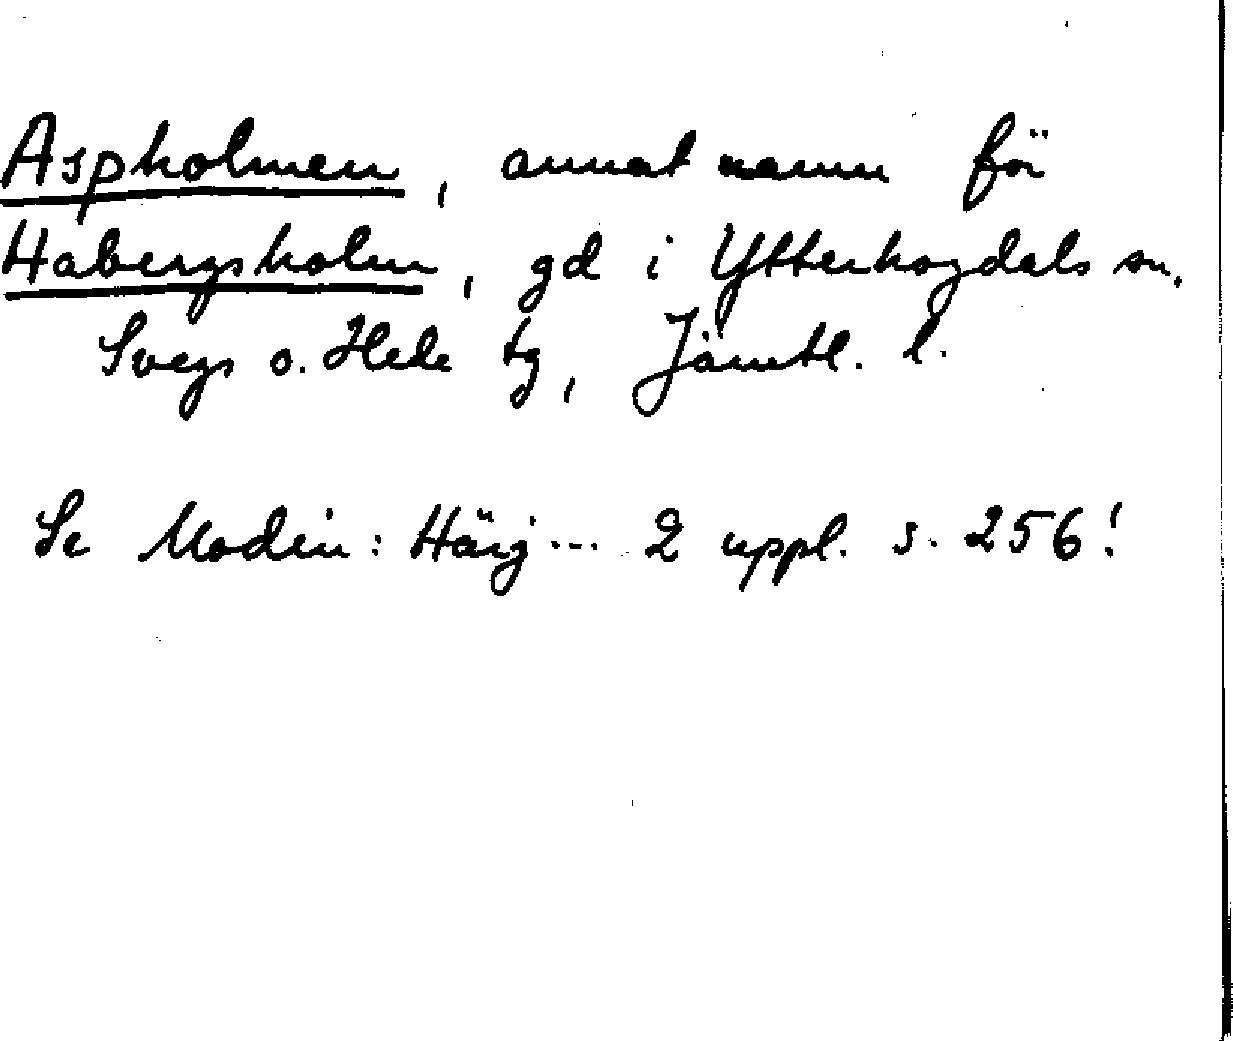 Aspholmen, annat namn för
Habergsholm, gd i Ytterhogdals sn.
Svegs o. Hede tg, Jämtl. l.
Se Modin: Härj... 2 uppl. s. 256!